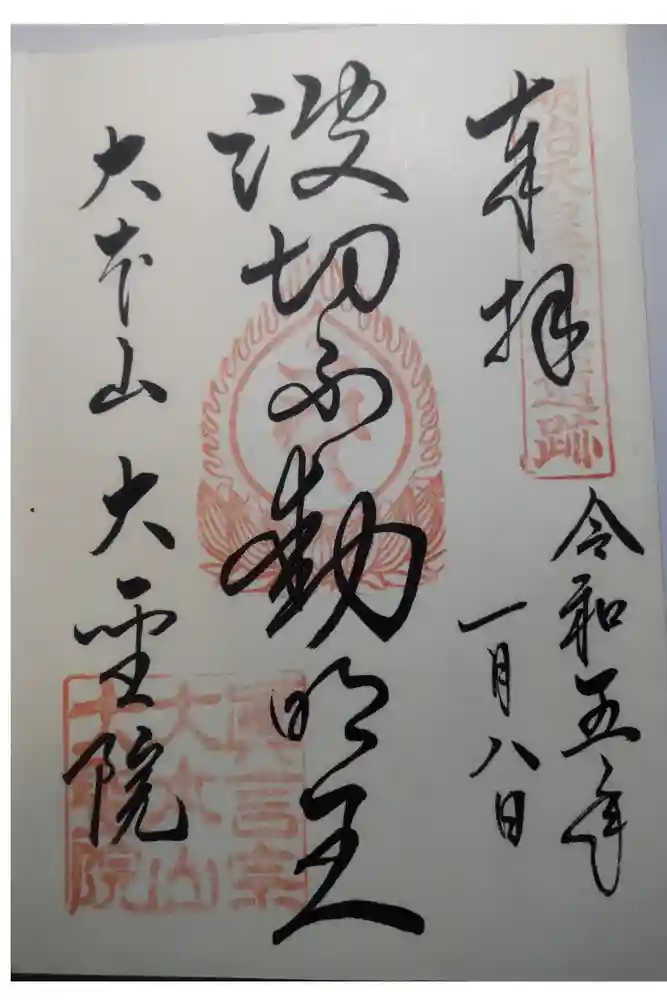 明治天皇遺跡
奉拝
令和五年
一月八日
波切不動明王
大本山 大聖院
眞言宗
大本山
大聖院